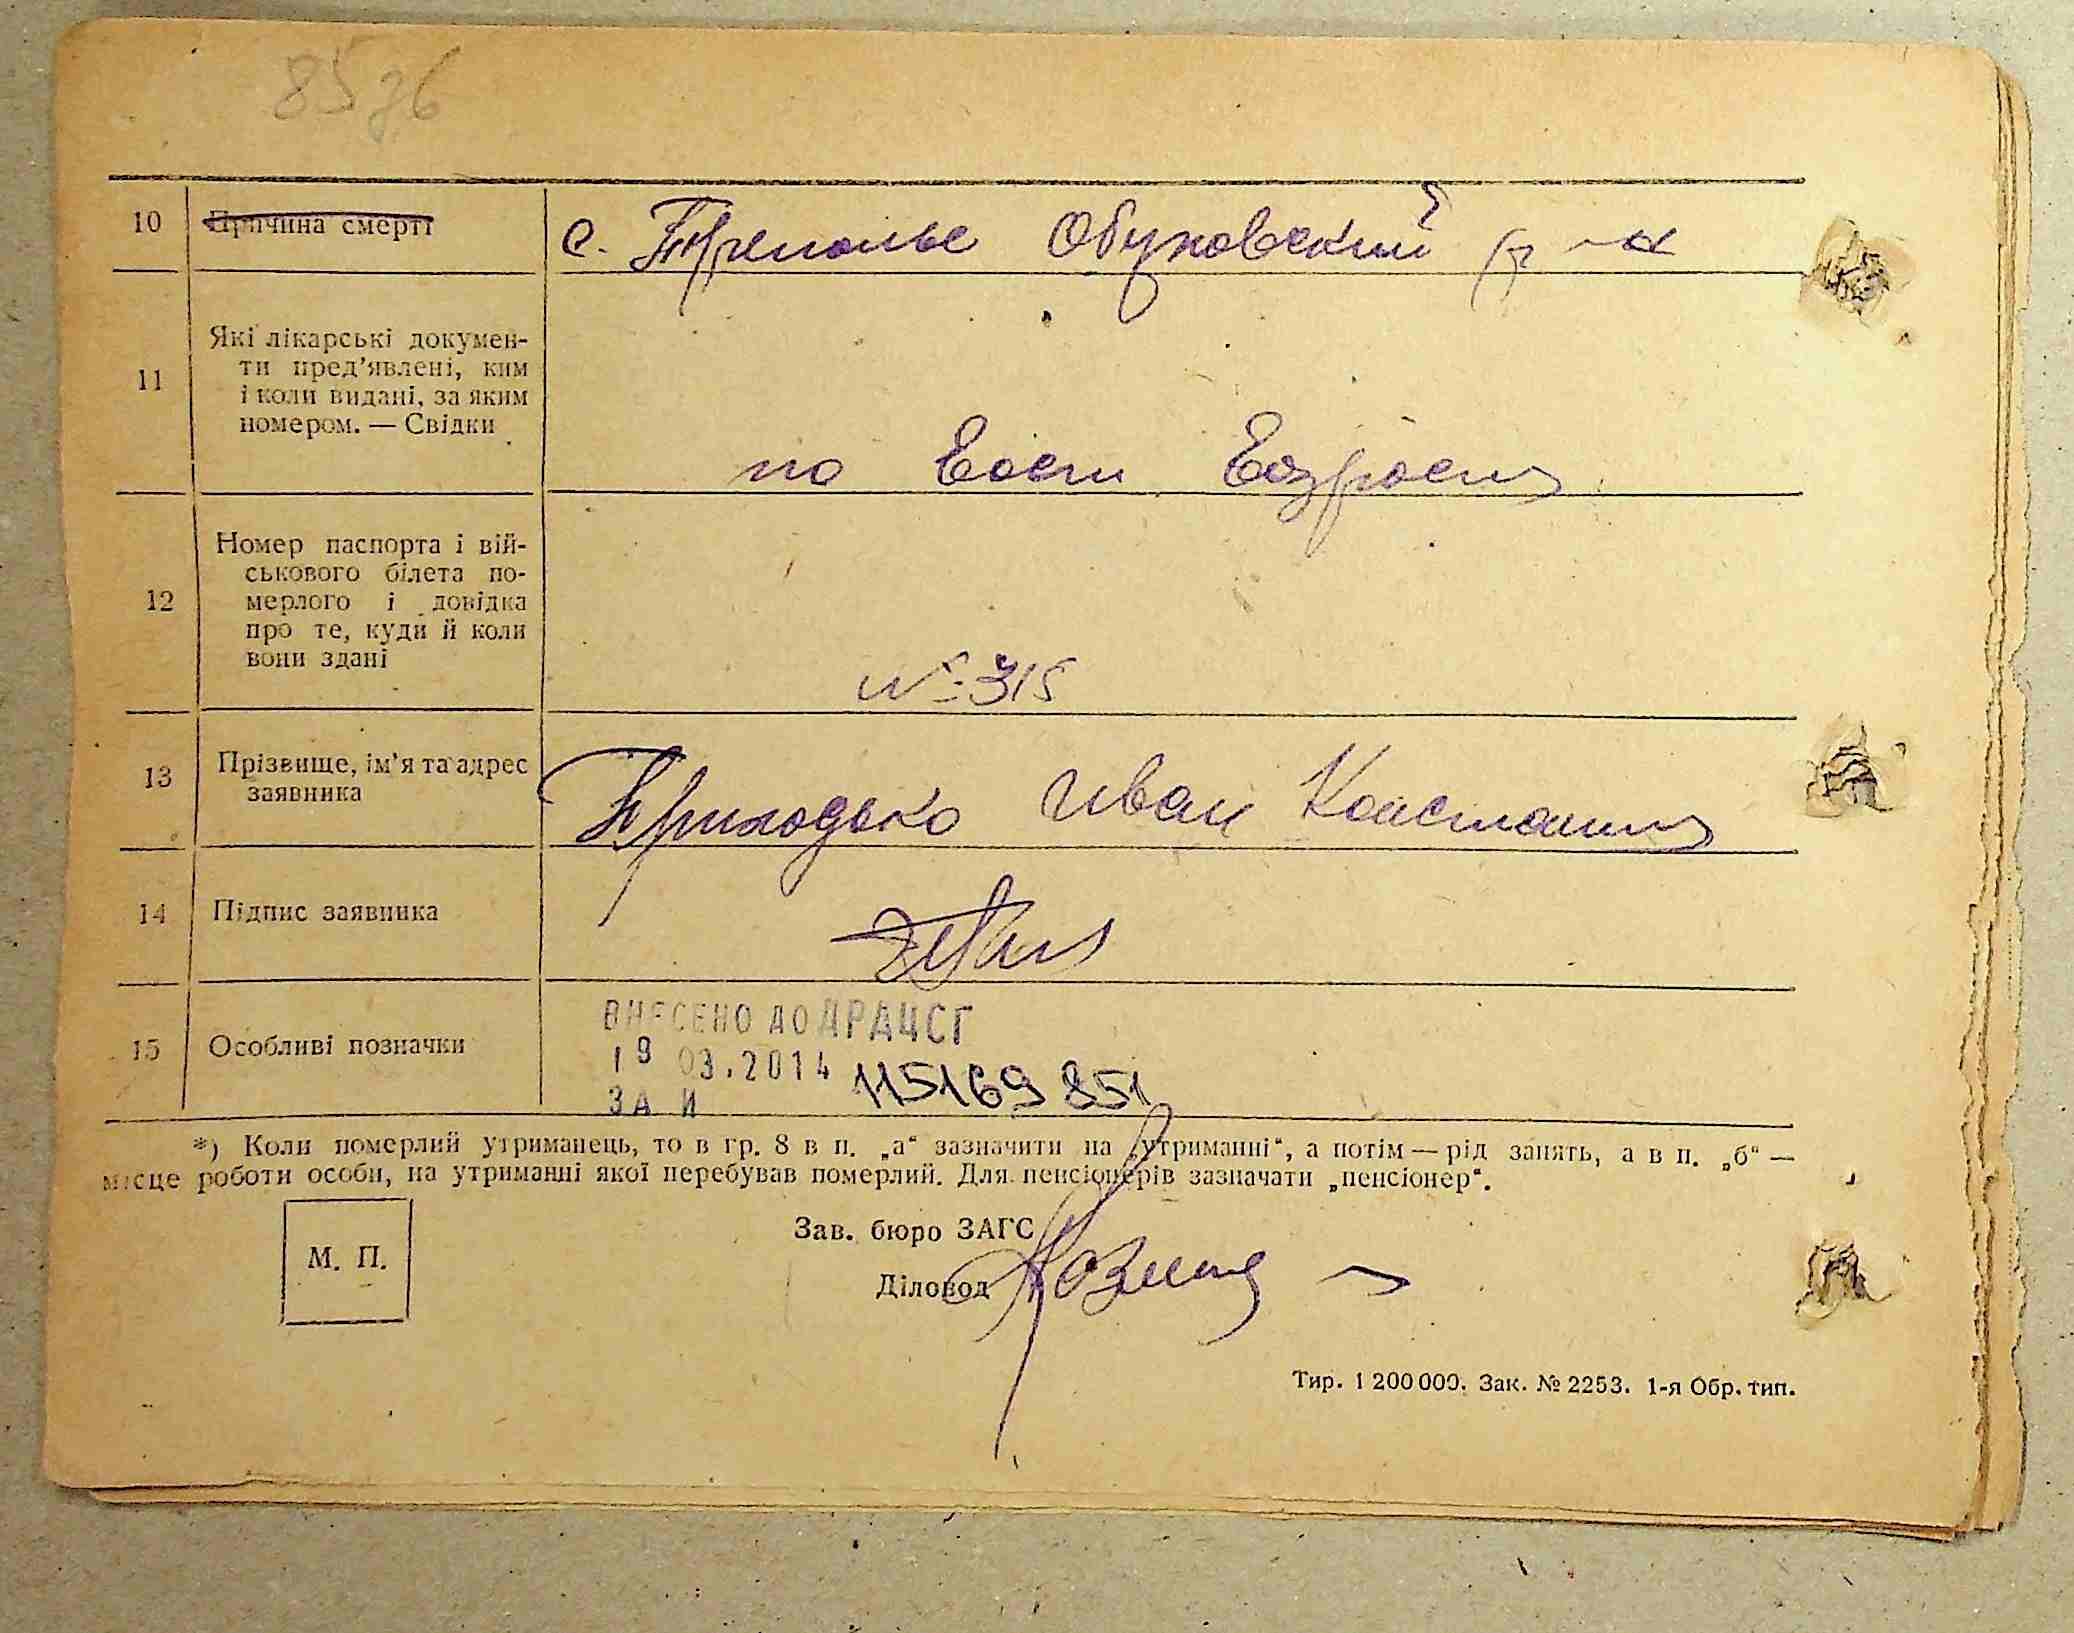 85 зб
10 Причина смерті с. Триполье Обуховский р-н
11 Які лікарські докумен-
ти пред’явлені, ким
і коли видані, за яким
номером. — Свідки
по
12 Номер паспорта і вій-
ськового білета по-
мерлого і довідка
про те, куди й коли
вони здані
№ 315
13 Прізвище, ім’я та адрес
заявника
Приходько Иван Констант
14 Підпис заявника
15 Особливі позначки
ВНЕСЕНО ДО ДРАЦСГ
19 03.2014 115169851
ЗА №
*) Коли померлий утриманець, то в гр. 8 в п. „а“ зазначити на „утриманні“, а потім — рід занять, а в п. „б“ —
місце роботи особи, на утриманні якої перебував померлий. Для пенсіонерів зазначати „пенсіонер“.
Зав. бюро ЗАГС
М. П.
Діловод
Тир. 1 200 000. Зак. № 2253. 1-я Обр. тип.